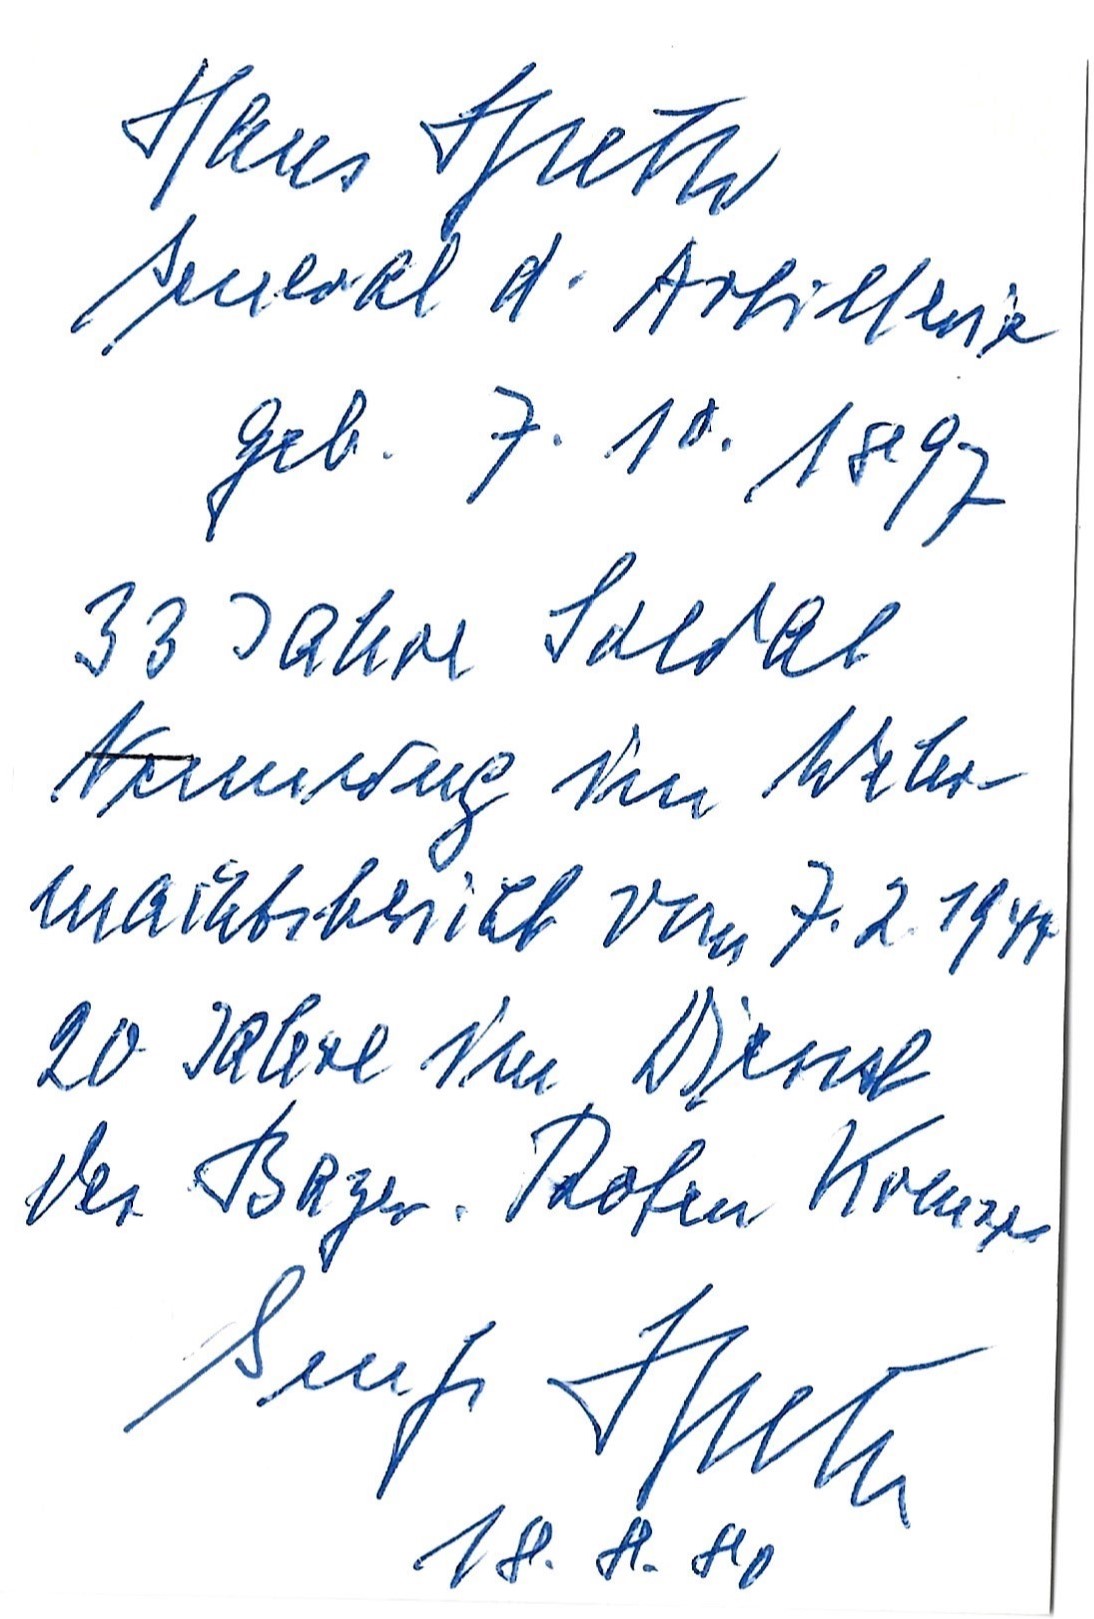 Hans Speth
General d. Artillerie
geb. 7. 10. 1897
33 Jahre Soldat
Nennung im Wehr-
machtsbericht vom 7. 2. 1944
20 Jahre im Dienst
des Bayer. Roten Kreuzes
Speth
18. 8. 80